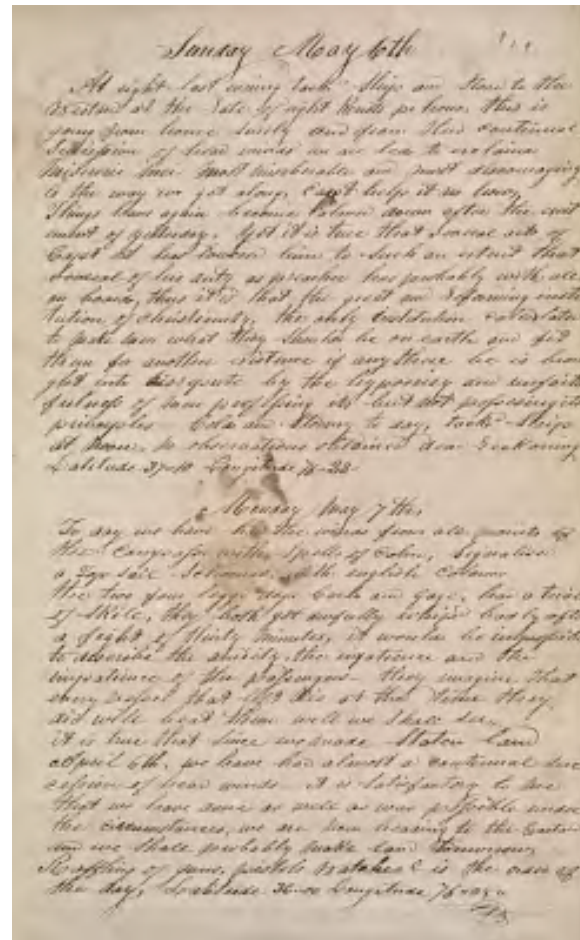 Sunday May 6th
At eight last evening tack Ship and stood to the
Westward at the rate of eight knots per hour, this is
going from home surely and from this continual
Succession of head winds we are led to exclaim
most miserable and most discouraging
is the way we get along, can't help it no how,
Things have again become calmed down after the excite
ment of yesterday. Yet it is true that several acts of
Capt has him to such an extent that
of his duty as preacher has probably with all
on board, thus it is that the great and Reforming insti
tution of christianity, the only institution calculated
to make man what they should be on earth and fit
them for another existence if any there be is brou
ght into disrepute by the hypocrisy and unfaith
fulness of some professing it but not possessing its
principles Cold and Stormy to day, tack Ship
at Noon, no observations obtained dead reckoning
Latitude 37-10 Longitude 78-28
Monday May 7th,
To day we have had the winds from all points of
the Compass with spells of Calm, Signalized
a Top sail Schooner, with english colours
the two dogs Cash and Gage, had a trial
of skill, they both got awfully whip'd badly after
a fight of thirty minutes, it would be impossible
to describe the anxiety, the and the
impatience of the passengers. they imagine that
every vessel that left Rio at the time they
did will beat them well we shall see,
it is true that since we made Staten land
April 6th, we have had almost a continual suc
cession of head winds it is satisfactory to me
that we have done as well as was possible under
the circumstances, we are now heading to the East
and we shall probably make land tomorrow,
Raffling of guns, pistols watches &c is the order of
the day, Latitude 36-00 Longitude 76